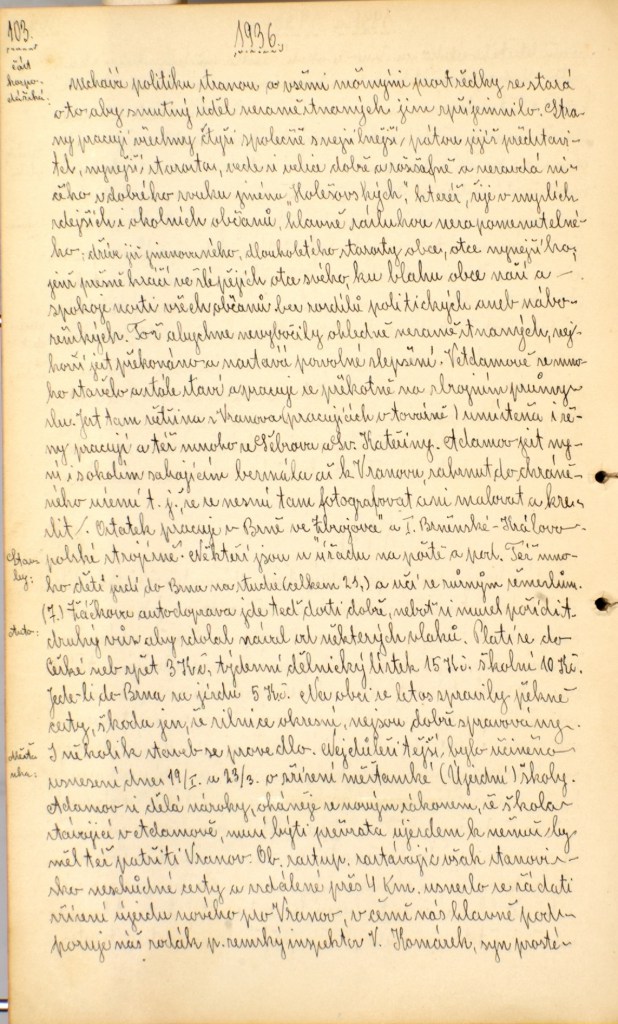 103.
1936.
část
hospo-
dářská:
Nechává politiku stranou a všemi možnými prostředky se stará
o to aby smutný úděl nezaměstnaných jim zpříjemnilo. Stra-
ny pracují všechny čtyři společně s nejsilnější / pátou jejíž představi-
tel, nynější starosta, vede si velice dobře a rozšafně a nezadá ni-
čeho z dobrého zvuku jména „Holešovských", kteréž, žije v myslích
zdejších i okolních občanů, hlavně zásluhou nezapomenutelné-
ho, dříve již jmenovaného, dlouholetého starosty obce, otce nynejšího,
jenž přesně kráčí ve šlépějích otce svého, ku blahu obce naší a –
spokojenosti všech občanů bez rozdílů politických aneb nábo-
ženských. Tož abychme nevybočily ohledně nezaměstnaných, nej-
horší jest překonáno a nastává pozvolné zlepšení. V Adamově se mno-
ho stavělo a stále staví a pracuje se překotně na zbrojním průmy-
slu. Jest tam většina z Vranova (pracujících v továrně) umístěna i že-
ny pracují a též mnoho ze Šebrova a Sv. Kateřiny. Adamov jest ny-
ní i s okolím sahajícím bezmála až k Vranovu, zahrnut do chráně-
ného území t. j. že se nesmí tam fotografovat ani malovat a kre-
slit /. Ostatek pracuje v Brně ve „Zbrojovce" a I. Brněnské – Královo-
polské strojírně. Někteří jsou v úřadu na poště a pod. Též mno-
Stav-
by:
ho dětí jezdí do Brna na studie (celkem 21,) a učí se různým řemeslům.
(7.) Žáčkova autodoprava jde teď dosti dobře, neboť si musel pořídit
Auto:
druhý vůz aby zdolal nával od některých vlaků. Platí se do
České neb zpět 3 Kč, týdenní dělnický lístek 15 Kč. školní 10 Kč.
Jede-li do Brna za jízdu 5 Kč. Na obci se letos spravily pěkně
cesty, škoda jen, že silnice okresní, nejsou dobře spravovány.
I několik staveb se provedlo. Nejdůležitější, bylo učiněno
Měšťa
nka:
usnesení dne 19/I. a 23/3. o zřízení měšťanské (Újezdní) školy.
Adamov si dělá nároky, oháněje se novým zákonem, že škola
stávající v Adamově, musí býti převzata újezdem k němuž by
měl též patřiti Vranov. Ob. zastup. zastávajíc však stanovi-
sko neschůdné cesty a vzdálené přes 4 Km. usneslo se žádati
zřízení újezdu nového pro Vranov, v čemž nás hlavně pod-
poruje náš rodák p. zemský inspektor V. Komárek, syn prosté-